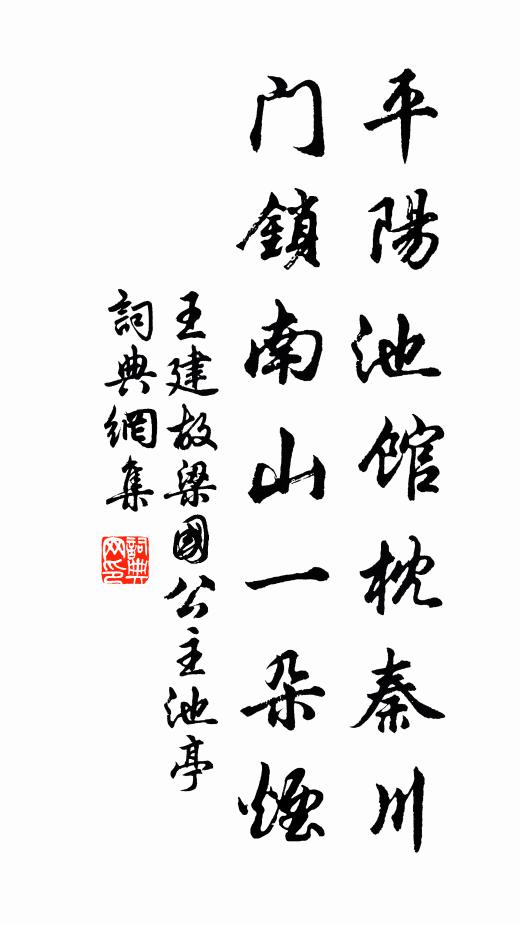 平陽池館枕秦川
門鎖南山一朵煙
王建故梁國公主池亭
詞典網集
詞典網印